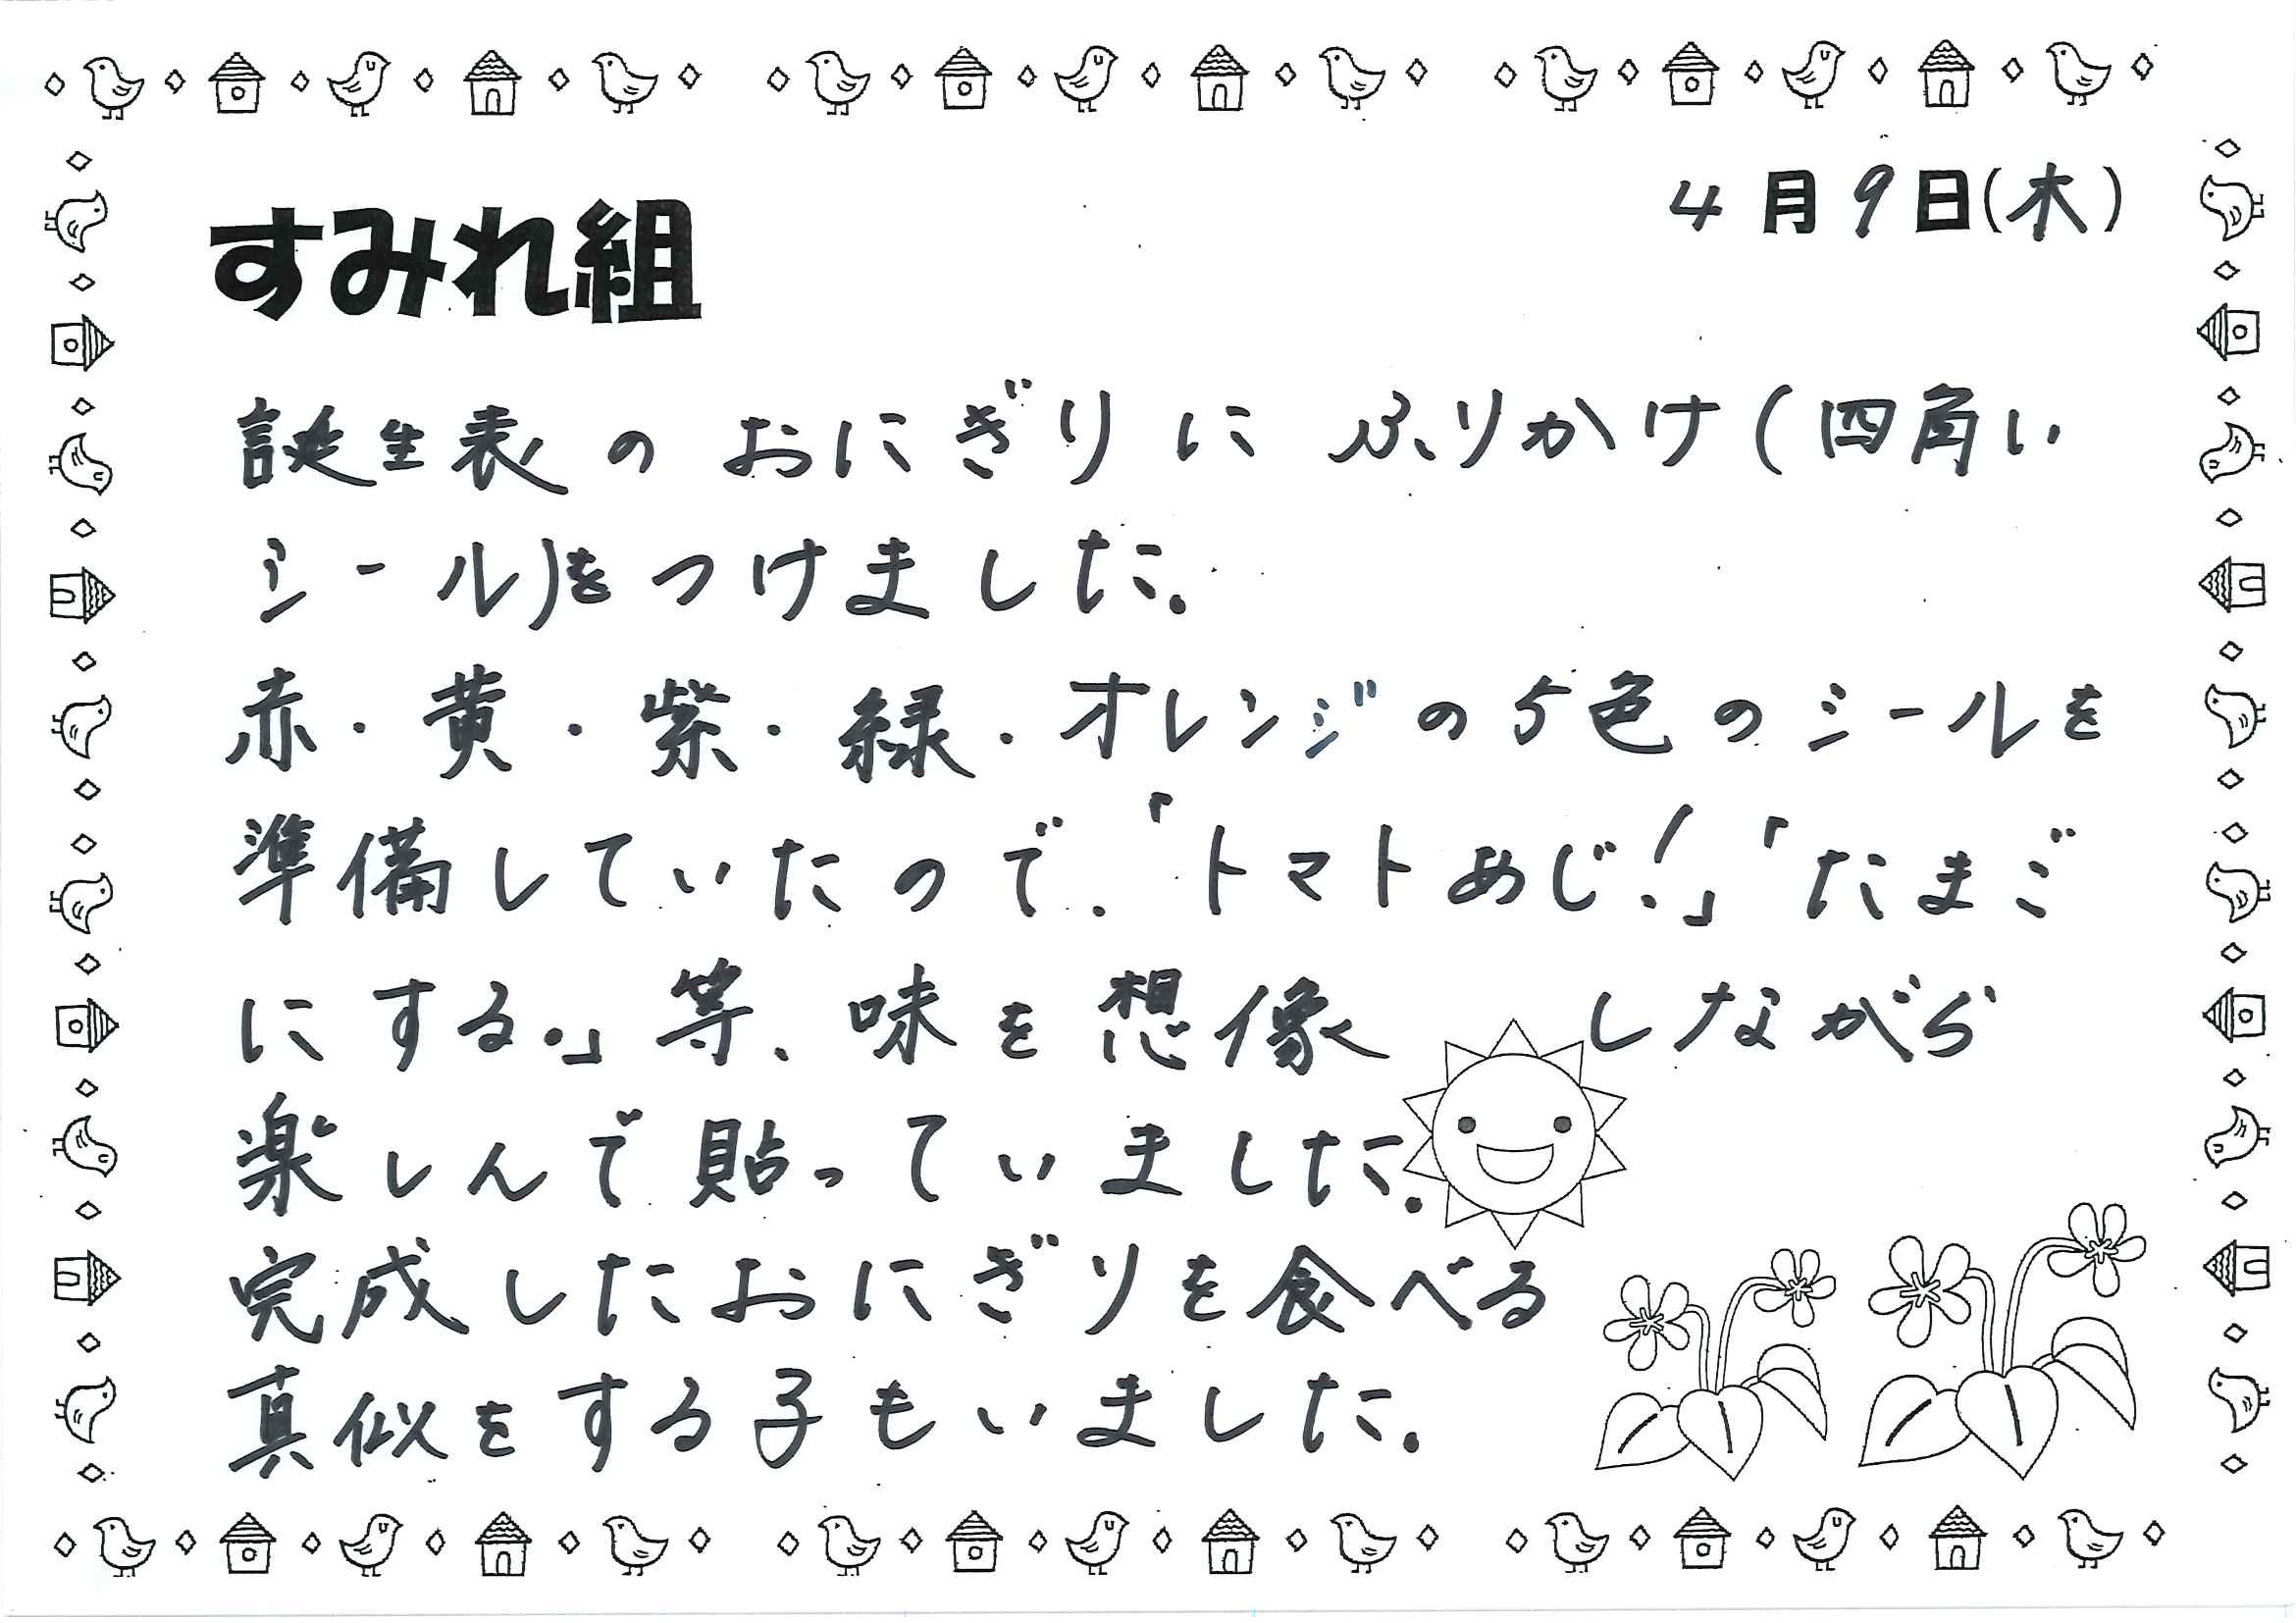 4月9日(木)
すみれ組
誕生表のおにぎりにふりかけ(四角い
シール)をつけました。
赤・黄・紫・緑・オレンジの5色のシールを
準備していたので、「トマトめじ!」「たまご
にする。」等、味を想像しながら
楽しんで貼っていました。
完成したおにぎりを食べる
真似をする子もいました。